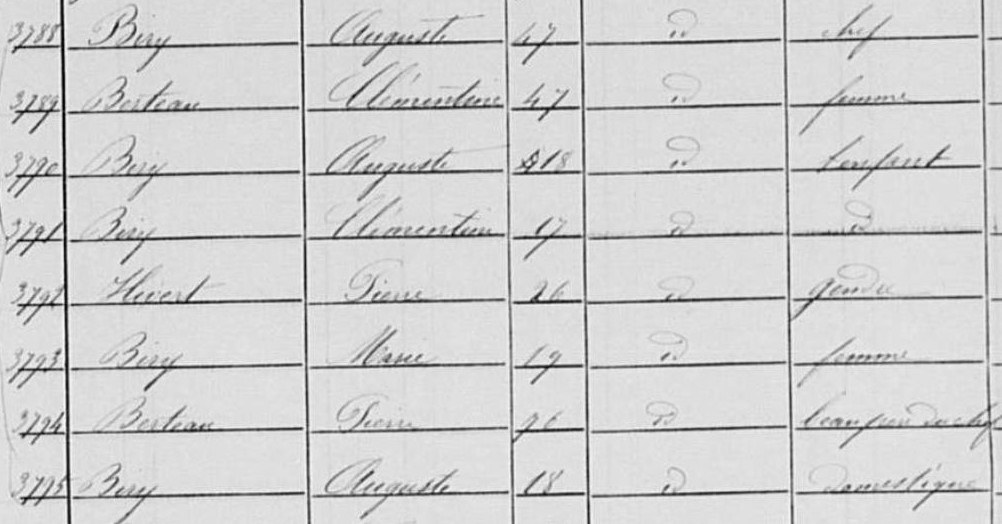 3788 Biry Auguste 47 id chef
3789 Berteau Clémentine 47 id femme
3790 Biry Auguste 18 id enfant
3791 Biry Clémentine 17 id id
3792 Hivert Pierre 26 id gendre
3793 Biry Marie 19 id femme
3794 Berteau Pierre 76 id beau père du chef
3795 Biry Auguste 18 id domestique